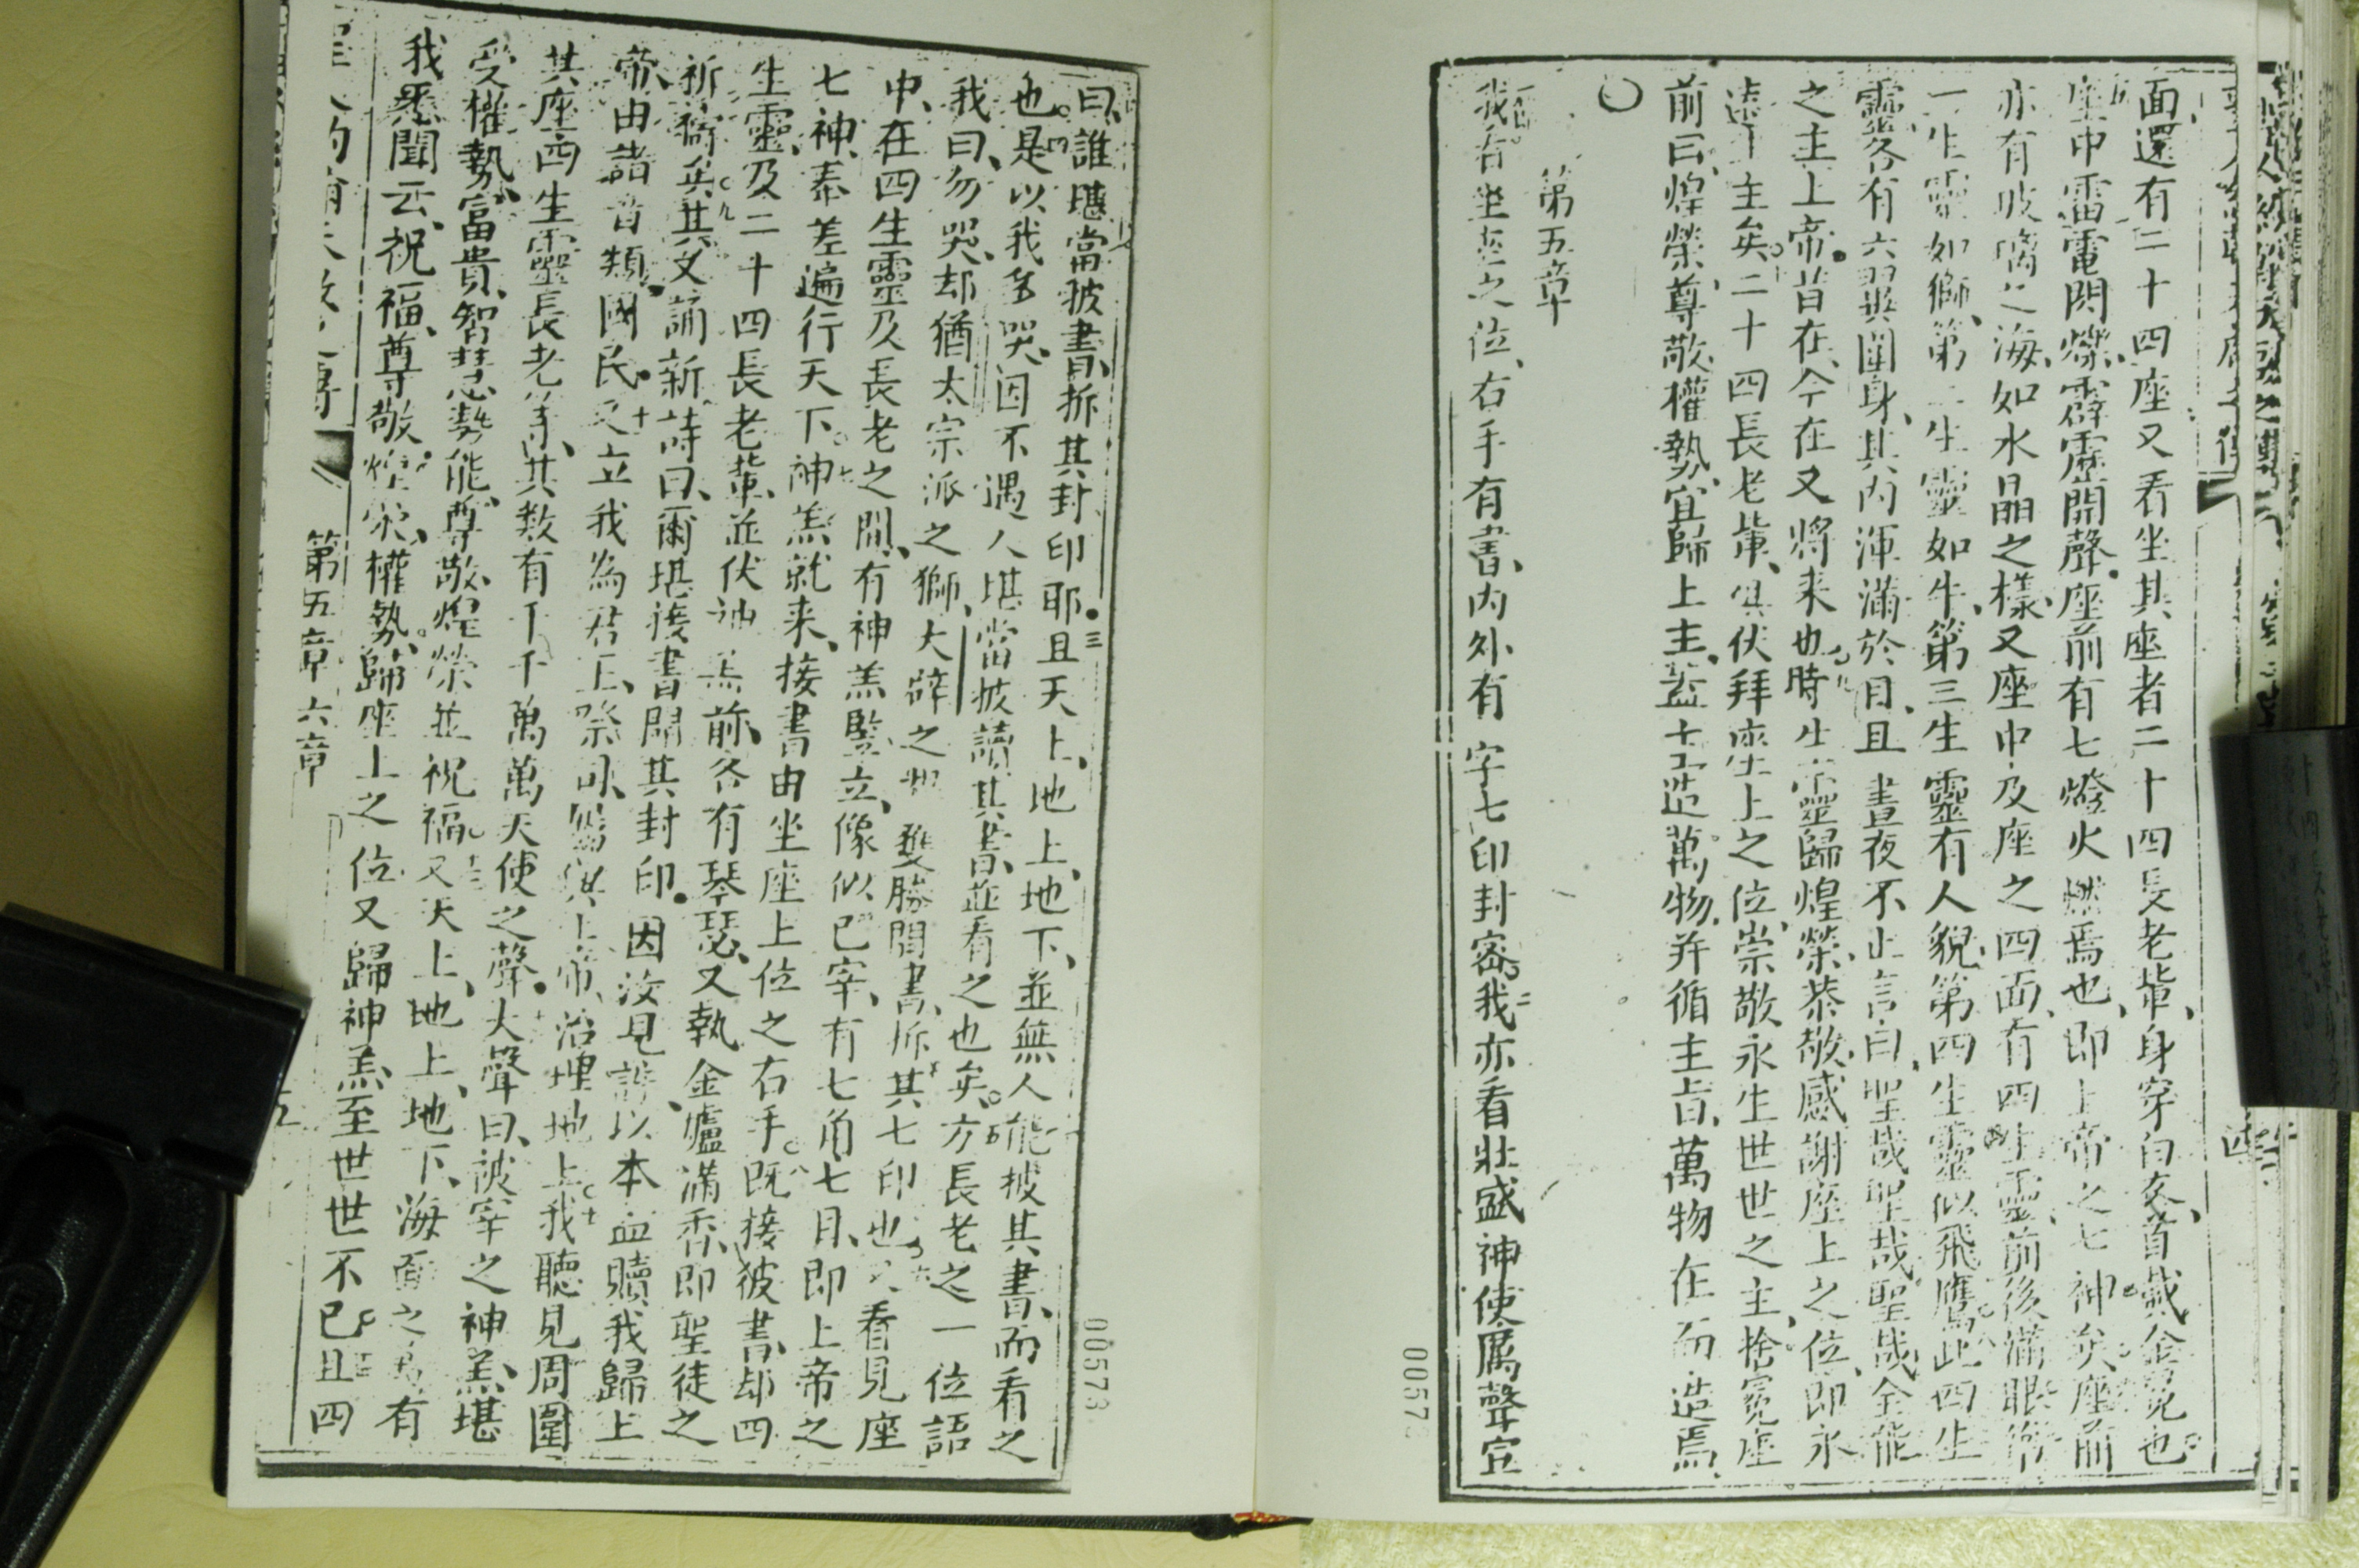 面還有二十四座又看坐其座者二十四長老輩、身穿白衣、首戴金冕也
座中雷電閃爍、霹靂開聲、座前有七燈火燃焉也、即上帝之七神矣、座前
亦有玻璃之海、如水晶之樣、又座中及座之四面、有四生靈、前後滿眼
一生靈如獅、第二生靈如牛、第三生靈有人貌、第四生靈似飛鷹、此四生
靈、各有六翼圍身、其內渾滿於目、且晝夜不止言曰、聖哉聖哉聖哉、全能
之主上帝、昔在、今在、又將來也、時生靈歸煌榮、恭敬、感謝座上之位、即永
遠之主矣、二十四長老輩、俱伏拜座上之位、崇敬永生世世之主、捨冕座
前曰、煌榮、尊敬、權勢、宜歸上主、蓋主造萬物、并循主旨、萬物在而造焉、
第五章
我看坐座之位、右手有書、內外有字七印封密、二我亦看壯盛神使厲聲宣
00573
曰、誰堪當披書、拆其封印耶、三且天上、地上、地下、並無人能披其書、而看之
也、四是以我多哭、因不遇人堪當披讀其書、並看之也矣、五方長老之一位語
我曰、勿哭、却猶太宗派之獅、大辟之 雙勝開書、拆其七印也、六又看見座
中、在四生靈及長老之間、有神羔豎立、像似已宰、有七角七目、即上帝之
七神、奉差遍行天下、七神羔就來、接書由坐座上位之右手、八既接彼書、却四
生靈、及二十四長老輩、並伏神羔前、各有琴瑟、又執金爐滿香、即聖徒之
祈禱矣、九其又誦新詩曰、爾堪接書開其封印、因汝見誅以本血贖我歸上
帝、由諸音類、國民、十又立我為君王、祭司、與上帝、治理地上、十一我聽見周圍
其座四生靈長老等、其數有千千萬萬天使之聲、十二大聲曰、被宰之神羔、堪
受權勢、富貴、智慧、勢能、尊敬、煌榮並祝福、十三又天上、地上、地下、海面之 有
我悉聞云、祝福、尊敬、煌榮、權勢、歸座上之位又歸神羔、至世世不已、十四且四
第五章 六章 五